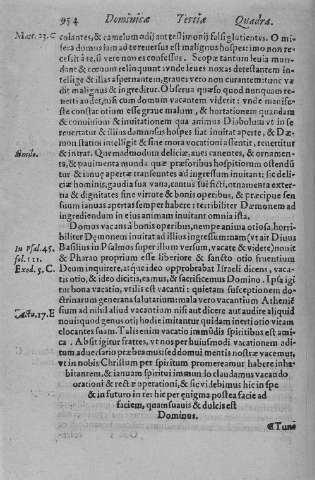 954 Dominicæ Tertiæ Quadra.
Mat. 23. C
colantes, & camelum adijciant testimonij falsi glutientes. O mi
sera domus iam ad te reuersus est malignus hospes: imo non re
cessit à te, si vere non es confessus. Scopæ tantum leuia mun
dant & terreum relinquunt vnde leues noxas detestantem in
tellige & illas aspernantem, graues vero non curantem: tunc va
dit malignus & ingreditur. Observa quæso quod nonquam re
uerti audet, nisi cum domum vacantem viderit: vnde manife-
ste constat otium esse graue malum, & hortationem quandam
& conuitium & inuitationem qua animus Diabolum vt in se
reuertatur & illius damnosus hospes fiat inuitat aperte, & Dæ
mon statim intelligit & sine mora vocationi assentit, reuertitur
Simile.
& intrat. Quemadmodum deliciæ, aut canentes, & ornamen-
ta, & pauimenta munda quæ præforibus hospitiorum ostendū
tur & ianuæ apertæ transeuntes ad ingressum inuitant: sic deli-
ciæ hominis, gaudia sua vana, cantus sui ficti, ornamenta exter-
na & dignitates sine virtute & bonis operibus, & præcipue sen
sium ianuas apertas semper habere: terribiliter Dæmonem ad
ingrediendum in eius animam inuitant omnia ista.
Domus vacans à bonis operibus, nempe anima otiosa, horri-
biliter Dæmonem inuitat ad illius ingressum: nam (vt ait Diuus
In Psal. 45.
Basilius in Psalmos super illum versum, vacate & videte) nouit
fol. 121.
& Pharao proprium esse liberiore & sancto otio fruentium
Exod. 5. C.
Deum inquirere, atque ideo opprobrabat Israeli dicens, vaca-
tis otio, & ideo dicitis, eamus, & sacrificemus Domino. Ipsa igi
tur bona vacatio, vtilis est vacanti: quietam susceptionem do-
ctrinarum generans salutarium: mala vero vacantium Atheniē
Acto. 17. E
sium ad nihil aliud vacantium nisi aut dicere aut audire aliquid
noui: quod genus otij hodie imitantur quidam in otio vitam
locantes suam. Talis enim vacatio immūdis spiritibus est ami-
ca. Absit igitur fratres, vt nos per huiusmodi vacationem adi-
tum aduersario præbeamus: sed domui mentis nostræ vacemus,
vt in nobis Christum per spiritum promereamur habere inha-
bitantem, & ianuam spiritui immundo claudamus vacando
orationi & rectæ operationi, & sic vi debimus hic in spe
& in futuro in re: hic per enigma postea facie ad
faciem, quam suauis & dulcis est
Dominus.
¶ Tunc